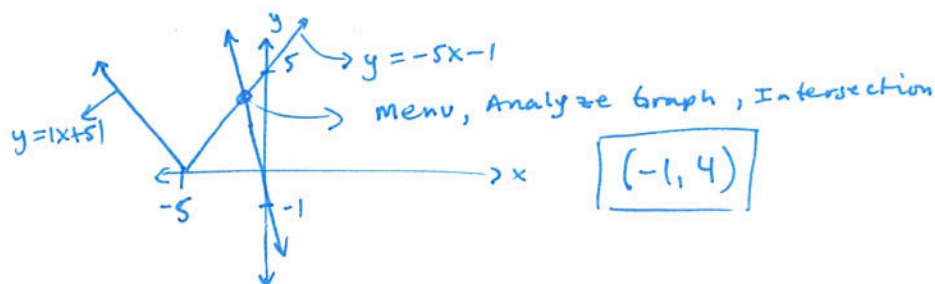 y
5
y = -5x-1
Menu, Analyze Graph, Intersection
y=|x+5|
x
(-1, 4)
-5
-1